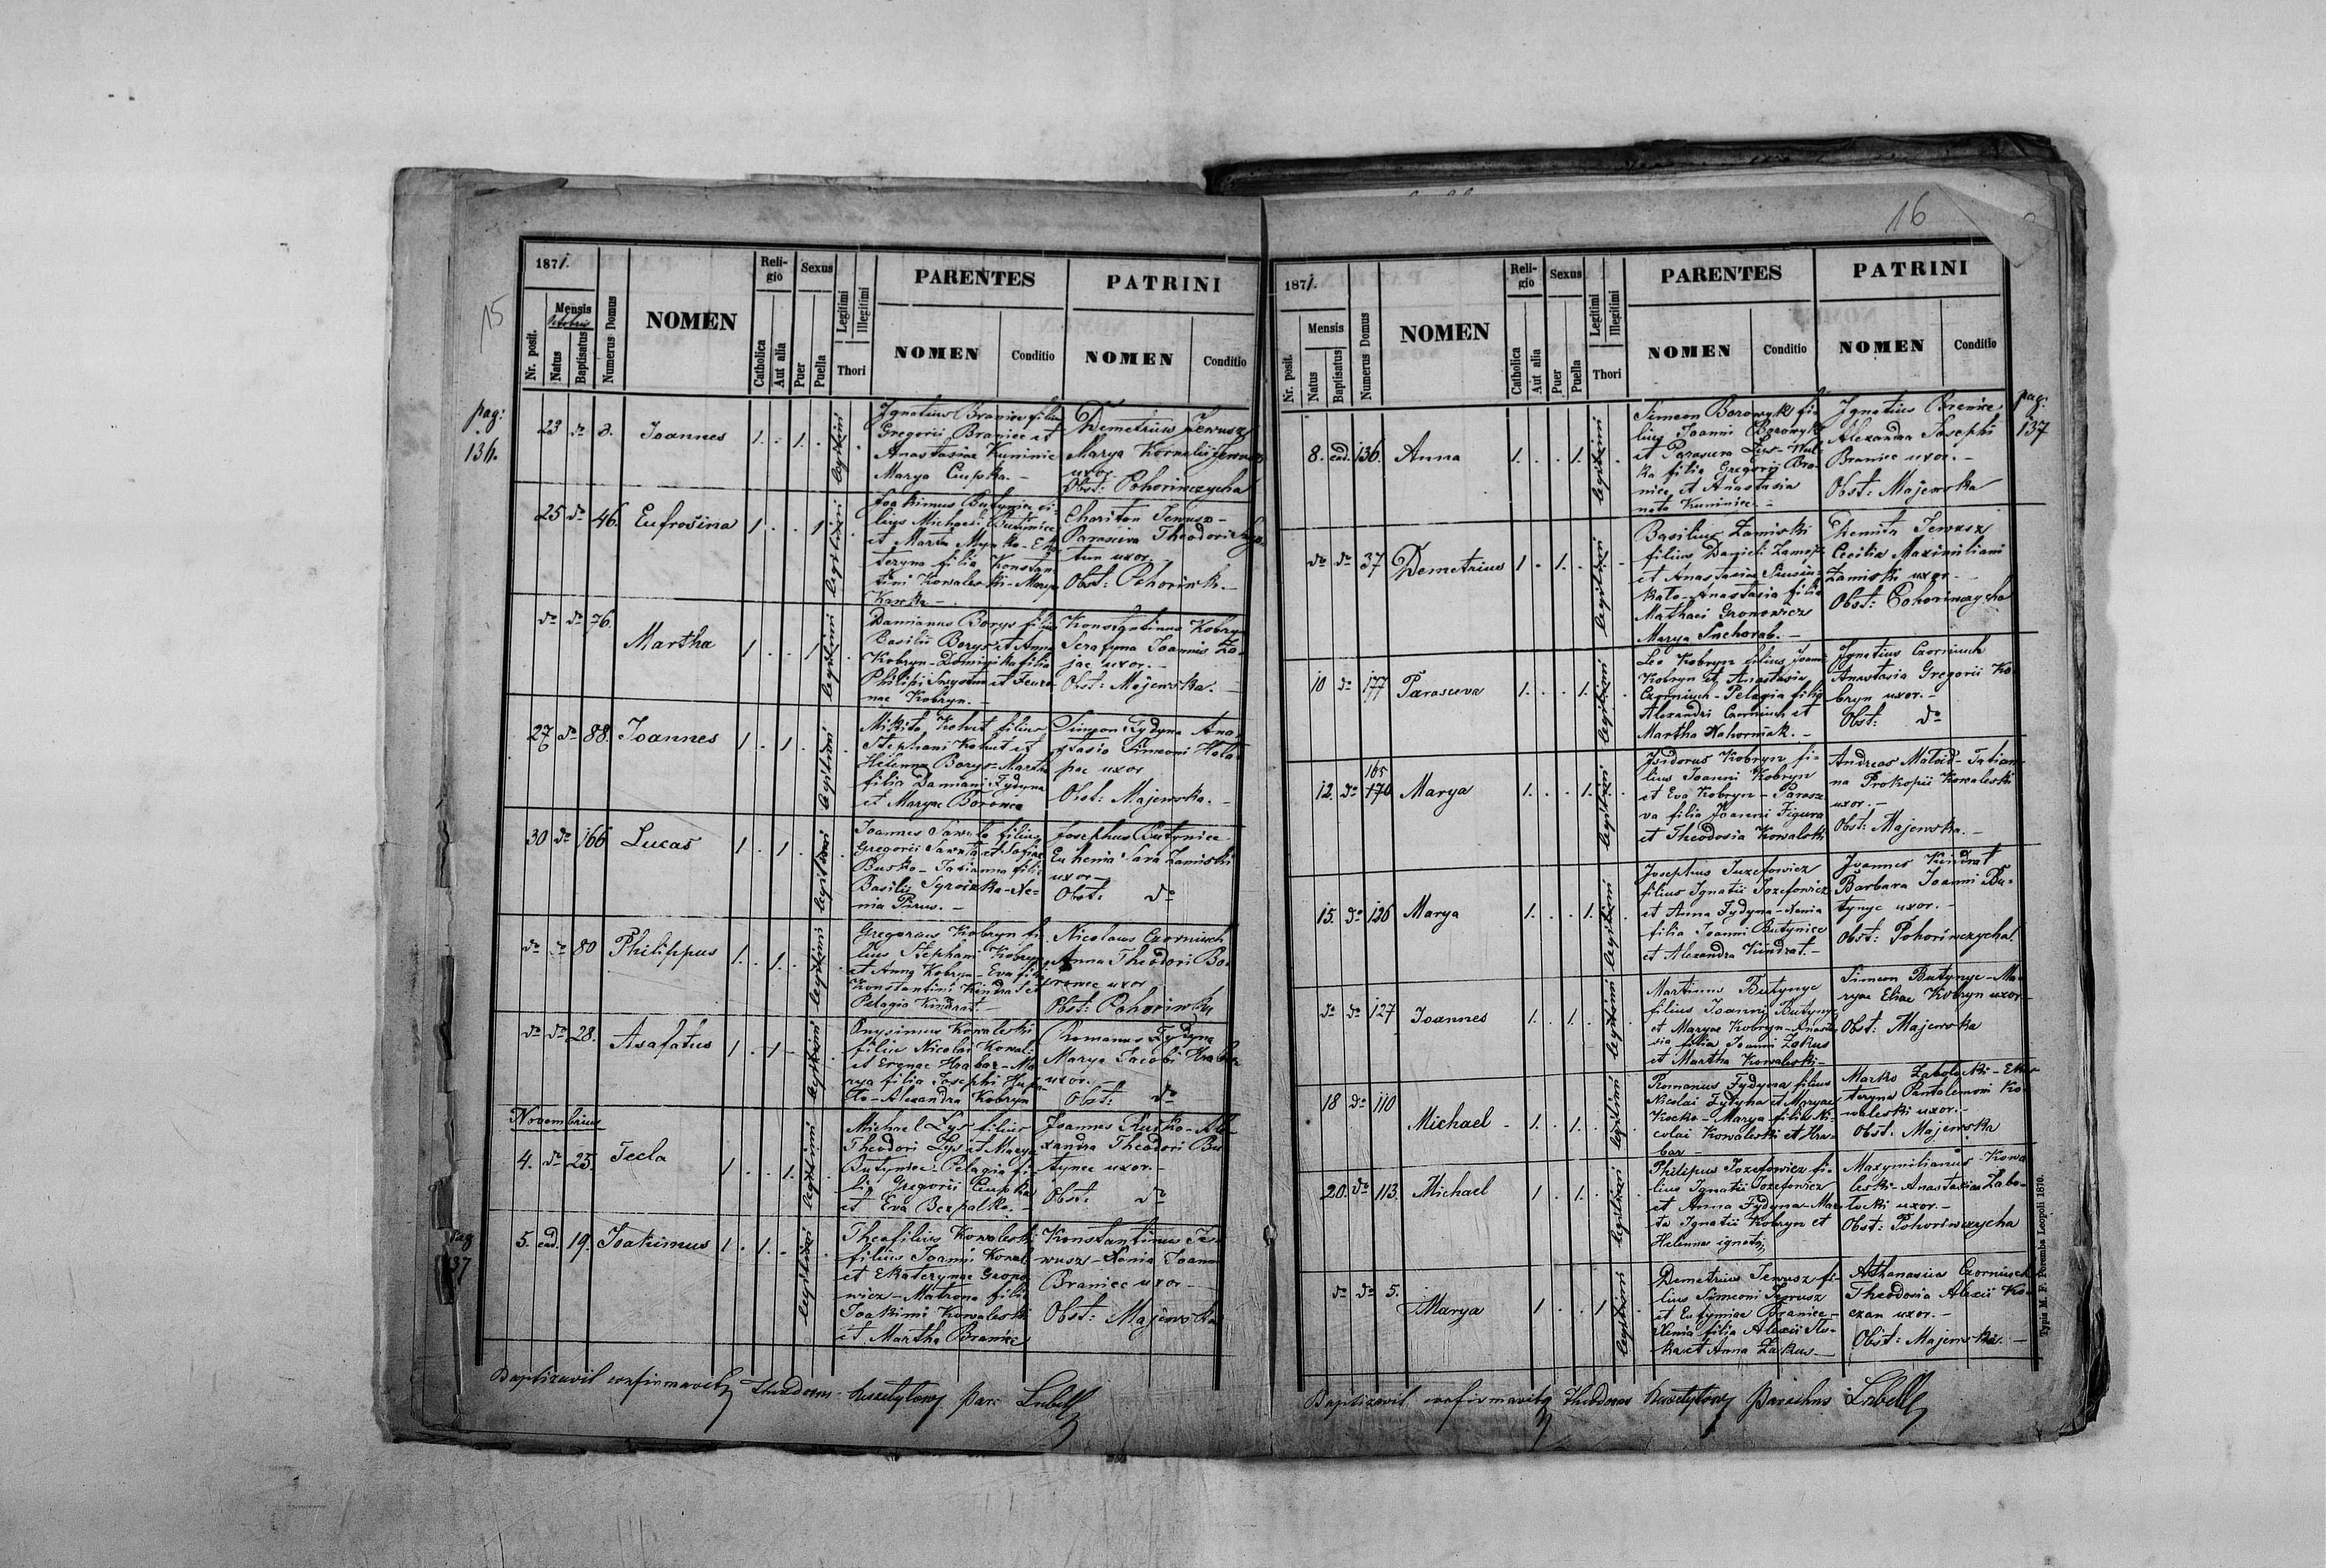 15
187/1.
Mensis
Octobris
Nr. posit.
Natus
Baptisatus
Numerus Domus
NOMEN
Reli-
gio
Catholica
Aut alia
Sexus
Puer
Puella
Legitimi
Illegitimi
Thori
PARENTES
NOMEN
Conditio
PATRINI
NOMEN
Conditio
pag:
136.
23 do 8. Joannes 1. . 1. . legitimi
Ignatius Braniec filius
Gregorii Braniec et
Anastasiae Kuminiec
Marya Ciupka. -
Demetrius Jewusz
Marya Kornelii Jewusz
uxor
Obst: Pohoriwczycha
25 do 46. Eufrosina 1 . . 1 . legitimi
Joakimus Butyniec fi-
lius Michaeli Butyniec
et Marta - Eka
teryna filia Konstan-
tini Kowaleski - Marya
Chariton Jewusz -
Parasceva Theodori
uxor
Obst: Pohoriwk. -
do do 76. Martha 1 . . 1 . legitimi
Damianus Borys filius
Basilii Borys et Anna
Kobryn - Dominika filia
Philipi et
nae Kobryn. -
Konstantinus Kobryn
Serafyna Joannis Za-
jac uxor. -
Obst: Majewska. -
27 do 88. Joannes 1 . 1 . legitimi
Mikita Kohut filius
Stephani Kohut et
Helenna Borys - Martha
filia Damiani Fydyna
et Maryae Borowec
Simeon Fydyna Ana-
stasia Simeoni Hala-
pac uxor
Obst: Majewska. -
30 do 166 Lucas 1 . 1 . legitimi
Joannes Sawula filius
Gregorii Sawula et Sofiae
Busko - Tatianna filia
Basilii Syroizka - Xe-
nia Pirus. -
Josephus Butyniec
Euhenia Sara Zamiski
uxor -
Obst: do
do do 80 Philippus 1. . 1. . legitimi
Gregorius Kobryn fi-
lius Stephani Kobryn
et Anny Kobryn - Eva filia
Konstantini Kindrat et
Pelagia Kindrat. -
Nicolaus Czorniuch
Anna Theodori Bo-
rowec uxor
Obst: Pohoriwka
do do 28. Asafatus 1 . 1 - legitimi
Onysimus Kowaleski
filius Nicolai Kowal-
et Erynae Hrabar - Ma
rya filia Josephi
- Alexandra Kobryn
Romanus Fydyna
Marya Jacobi Hrabar
uxor. -
Obst: do
Novembrius
4. do 25. Tecla 1 . . 1. legitimi
Michael Lys filius
Theodori Lys et Marya
Butyniec - Pelagia fi-
lia Gregorii Ciupka
et Eva Bezpalko. -
Joannes Rusko - Ale
xandra Theodori Bu
tynec uxor. -
Obst: do
pag
137
5. ead. 19. Joakimus 1 . 1. . legitimi
Theofilius Kowaleski
filius Joanni Kowal
et Ekaterynae Grono
wicz - Matrona filia
Joakimi Kowaleski
et Martha Braniec
Konstantinus Je-
wusz - Xenia Joanni
Braniec uxor -
Obst: Majewska
Baptisavit confirmavitq Theodorus par:
16
187/1.
Mensis
Nr. posit.
Natus
Baptisatus
Numerus Domus
NOMEN
Reli-
gio
Catholica
Aut alia
Sexus
Puer
Puella
Legitimi
Illegitimi
Thori
PARENTES
NOMEN
Conditio
PATRINI
NOMEN
Conditio
pag:
137
8. ead. 136. Anna 1. . . 1. legitimi
Simeon Borowyk fi-
lius Joanni Borowyk
et Parasceva
ka filia Gregorii Bra-
niec et Anastasia
nata Kuminiec -
Ignatius Braniec
Alexandra Josephi
Braniec uxor. -
Obst: Majewska
do do 37 Demetrius 1 . 1. . legitimi
Basilius Zamiski
filius Danieli Zamiski
et Anastasiae
kalo - Anastasia filia
Mathaei Gronowicz
Marya Suchorab. -
Jewusz
Cecilia Maximiliani
Zamiski uxor -
Obst: Pohoriwczycha
10 do 177 Parasceva 1. . . 1. legitimi
Leo Kobryn filius Joanni
Kobryn et Anastasia
Czorniuch - Pelagia filia
Alexandri Czorniuch et
Martha Nahorniak. -
Ignatius Czorniuch
Anastasia Gregorii Ko-
bryn uxor. -
Obst: do
12. do 165 170 Marya 1. . . 1. legitimi
Isidorus Kobryn fi-
lius Joanni Kobryn
et Eva Kobryn - Parasce
va filia Joanni Figura
et Theodosia Kowaleski
Andreas Matoid - Tatian
na Prokopii Kowaleski
uxor. -
Obst: Majewska. -
15. do 126 Marya 1. . . 1. legitimi
Josephus Juzefowicz
filius Ignatii Jozefowicz
et Anna Fydyna - Xenia
filia Joanni Butyniec
et Alexandra Kindrat. -
Joannes Kindrat
Barbara Joanni Bu-
tynyc uxor. -
Obst: Pohoriwczycha
do do 127 Joannes 1. . 1. . legitimi
Martinus Butynyc
filius Joanni Butynyc
et Maryae Kobryn - Anasta
sia filia Joanni Zakus
et Martha Kowaleski -
Simeon Butynyc - Ma-
ryae Eliae Kobryn uxor -
Obst: Majewska
18 do 110 Michael - 1. . 1. . legitimi
Romanus Fydyna filius
Nicolai Fydyna et Maryae
Kocko - Marya filia Ni-
colai Kowaleski et Hra-
bar -
Marko Zabolocki - Eka-
teryna Pantalemoni Ko-
waleski uxor. -
Obst. Majewska
20. do 113. Michael 1 . 1. . legitimi
Philipus Jozefowicz fi-
lius Ignatii Jozefowicz
et Anna Fydyna - Mar
ta Ignatii Kobryn et
Helenna ignoti
Maxymilianus Kowa
leski - Anastasia Zabo-
locki uxor. -
Obst: Pohoriwczycha
do do 5. Marya 1 . . 1 legitimi
Demetrius Jewusz fi-
lius Simeoni Jewusz
et Eufymiae Braniec -
Xenia filia Alexii
et Anna Zakus -
Athanasius Czorniuch
Theodosia Alexii Ko-
czan uxor. -
Obst: Majewska. -
Baptisavit confirmavitq Theodorus Parochus
Typis M. F. Poremba Leopoli 1870.